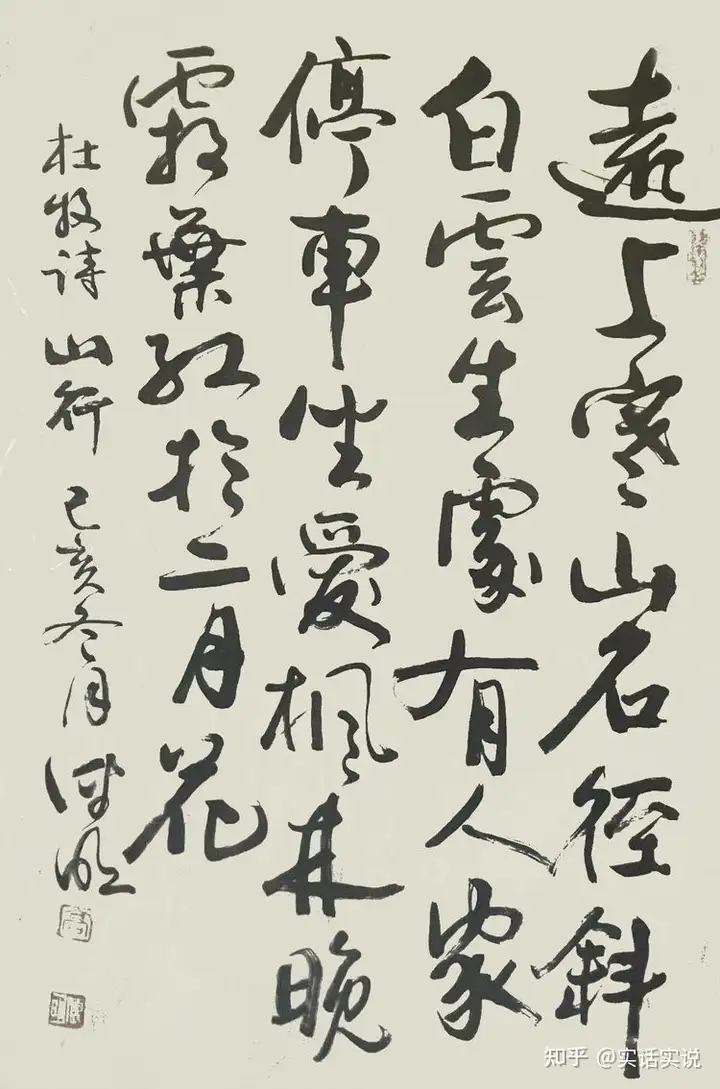 遠上寒山石徑斜
白雲生處有人家
停車坐愛楓林晚
霜葉紅於二月花
杜牧诗 山行 己亥冬月
知乎 @实话实说